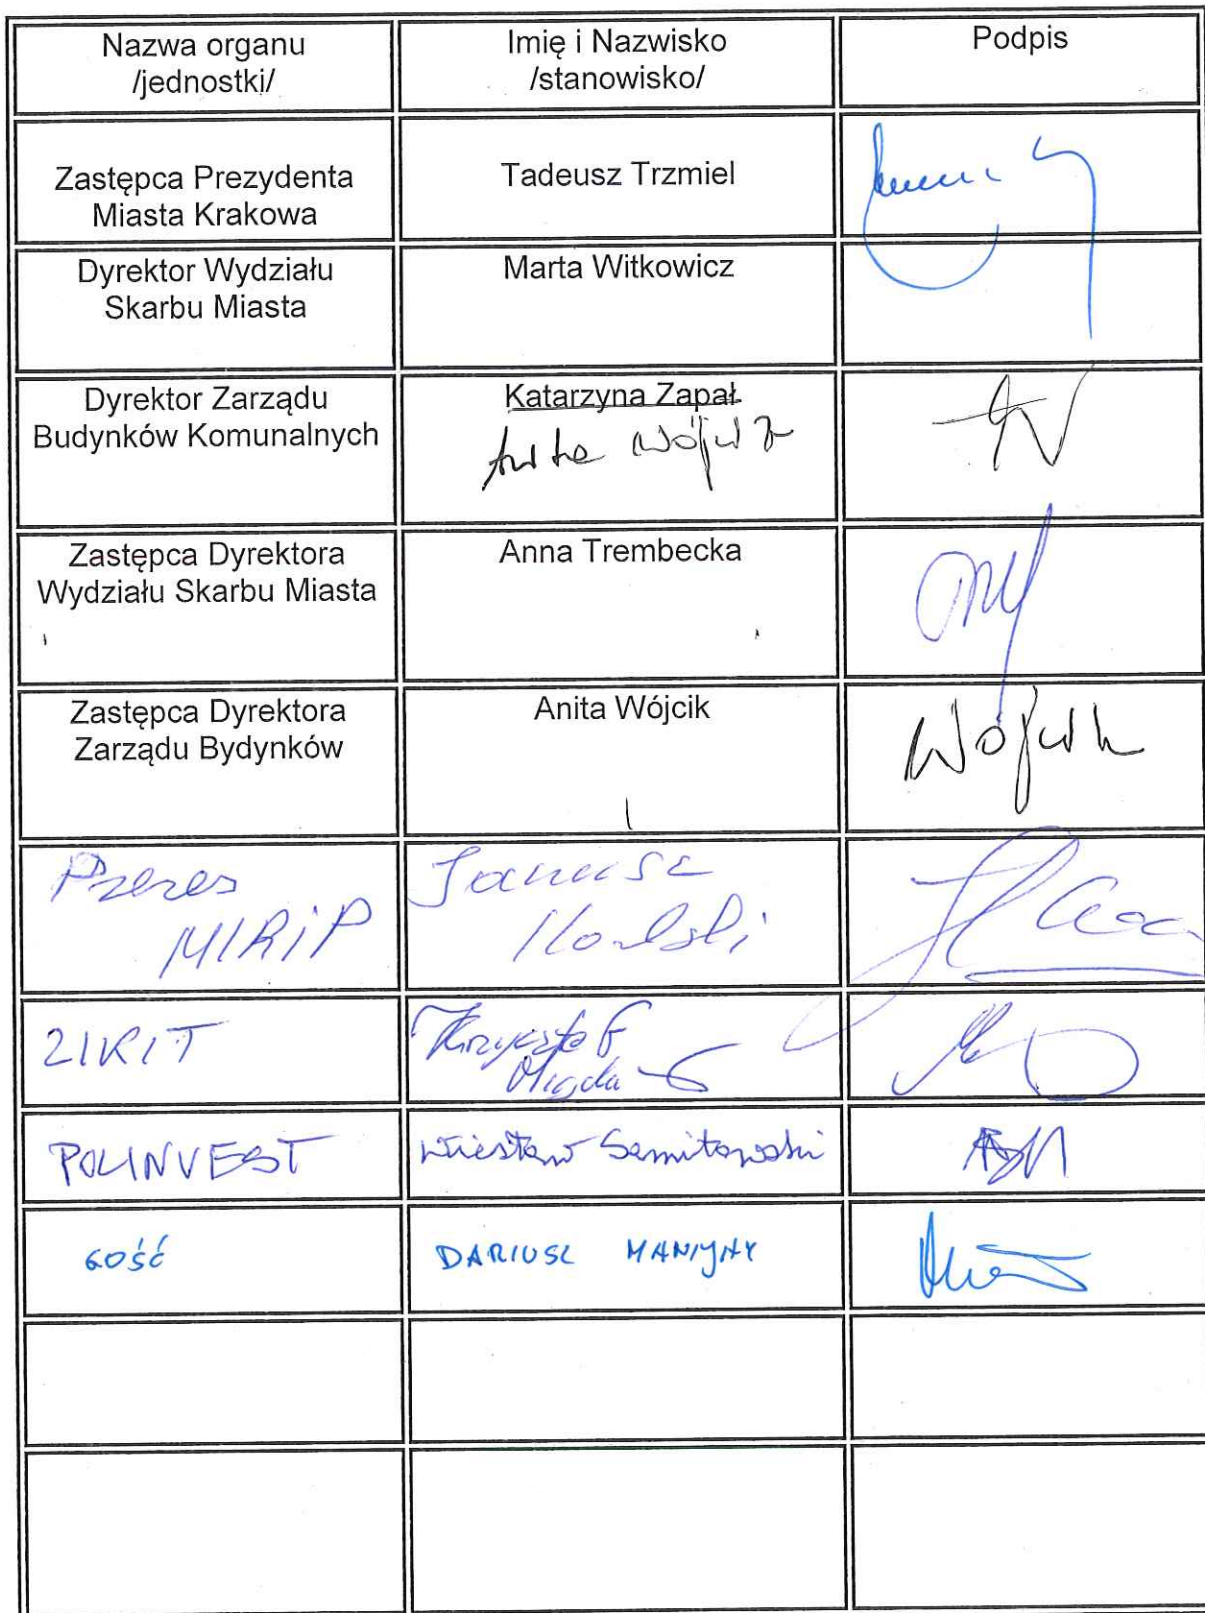 Nazwa organu
/jednostki/
Imię i Nazwisko
/stanowisko/
Podpis
Zastępca Prezydenta
Miasta Krakowa
Tadeusz Trzmiel
Dyrektor Wydziału
Skarbu Miasta
Marta Witkowicz
Dyrektor Zarządu
Budynków Komunalnych
Katarzyna Zapał
Anita Wójcik
Zastępca Dyrektora
Wydziału Skarbu Miasta
Anna Trembecka
Zastępca Dyrektora
Zarządu Bydynków
Anita Wójcik
Wójcik
Prezes
MIRiP
Janusz
ZIKIT
Krzysztof
Migdał
POLINVEST
Wiesław
GOŚĆ
DARIUSZ